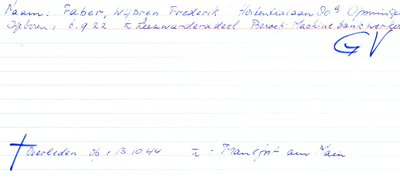 Naam: Faber, Wijbren Frederik Hortensialaan 80ª
Geboren, 6.9.22 te Leeuwarderadeel Beroep: Machine bankwerker
GV
† Overleden op: 13.10.44 te: Frankfort am Main